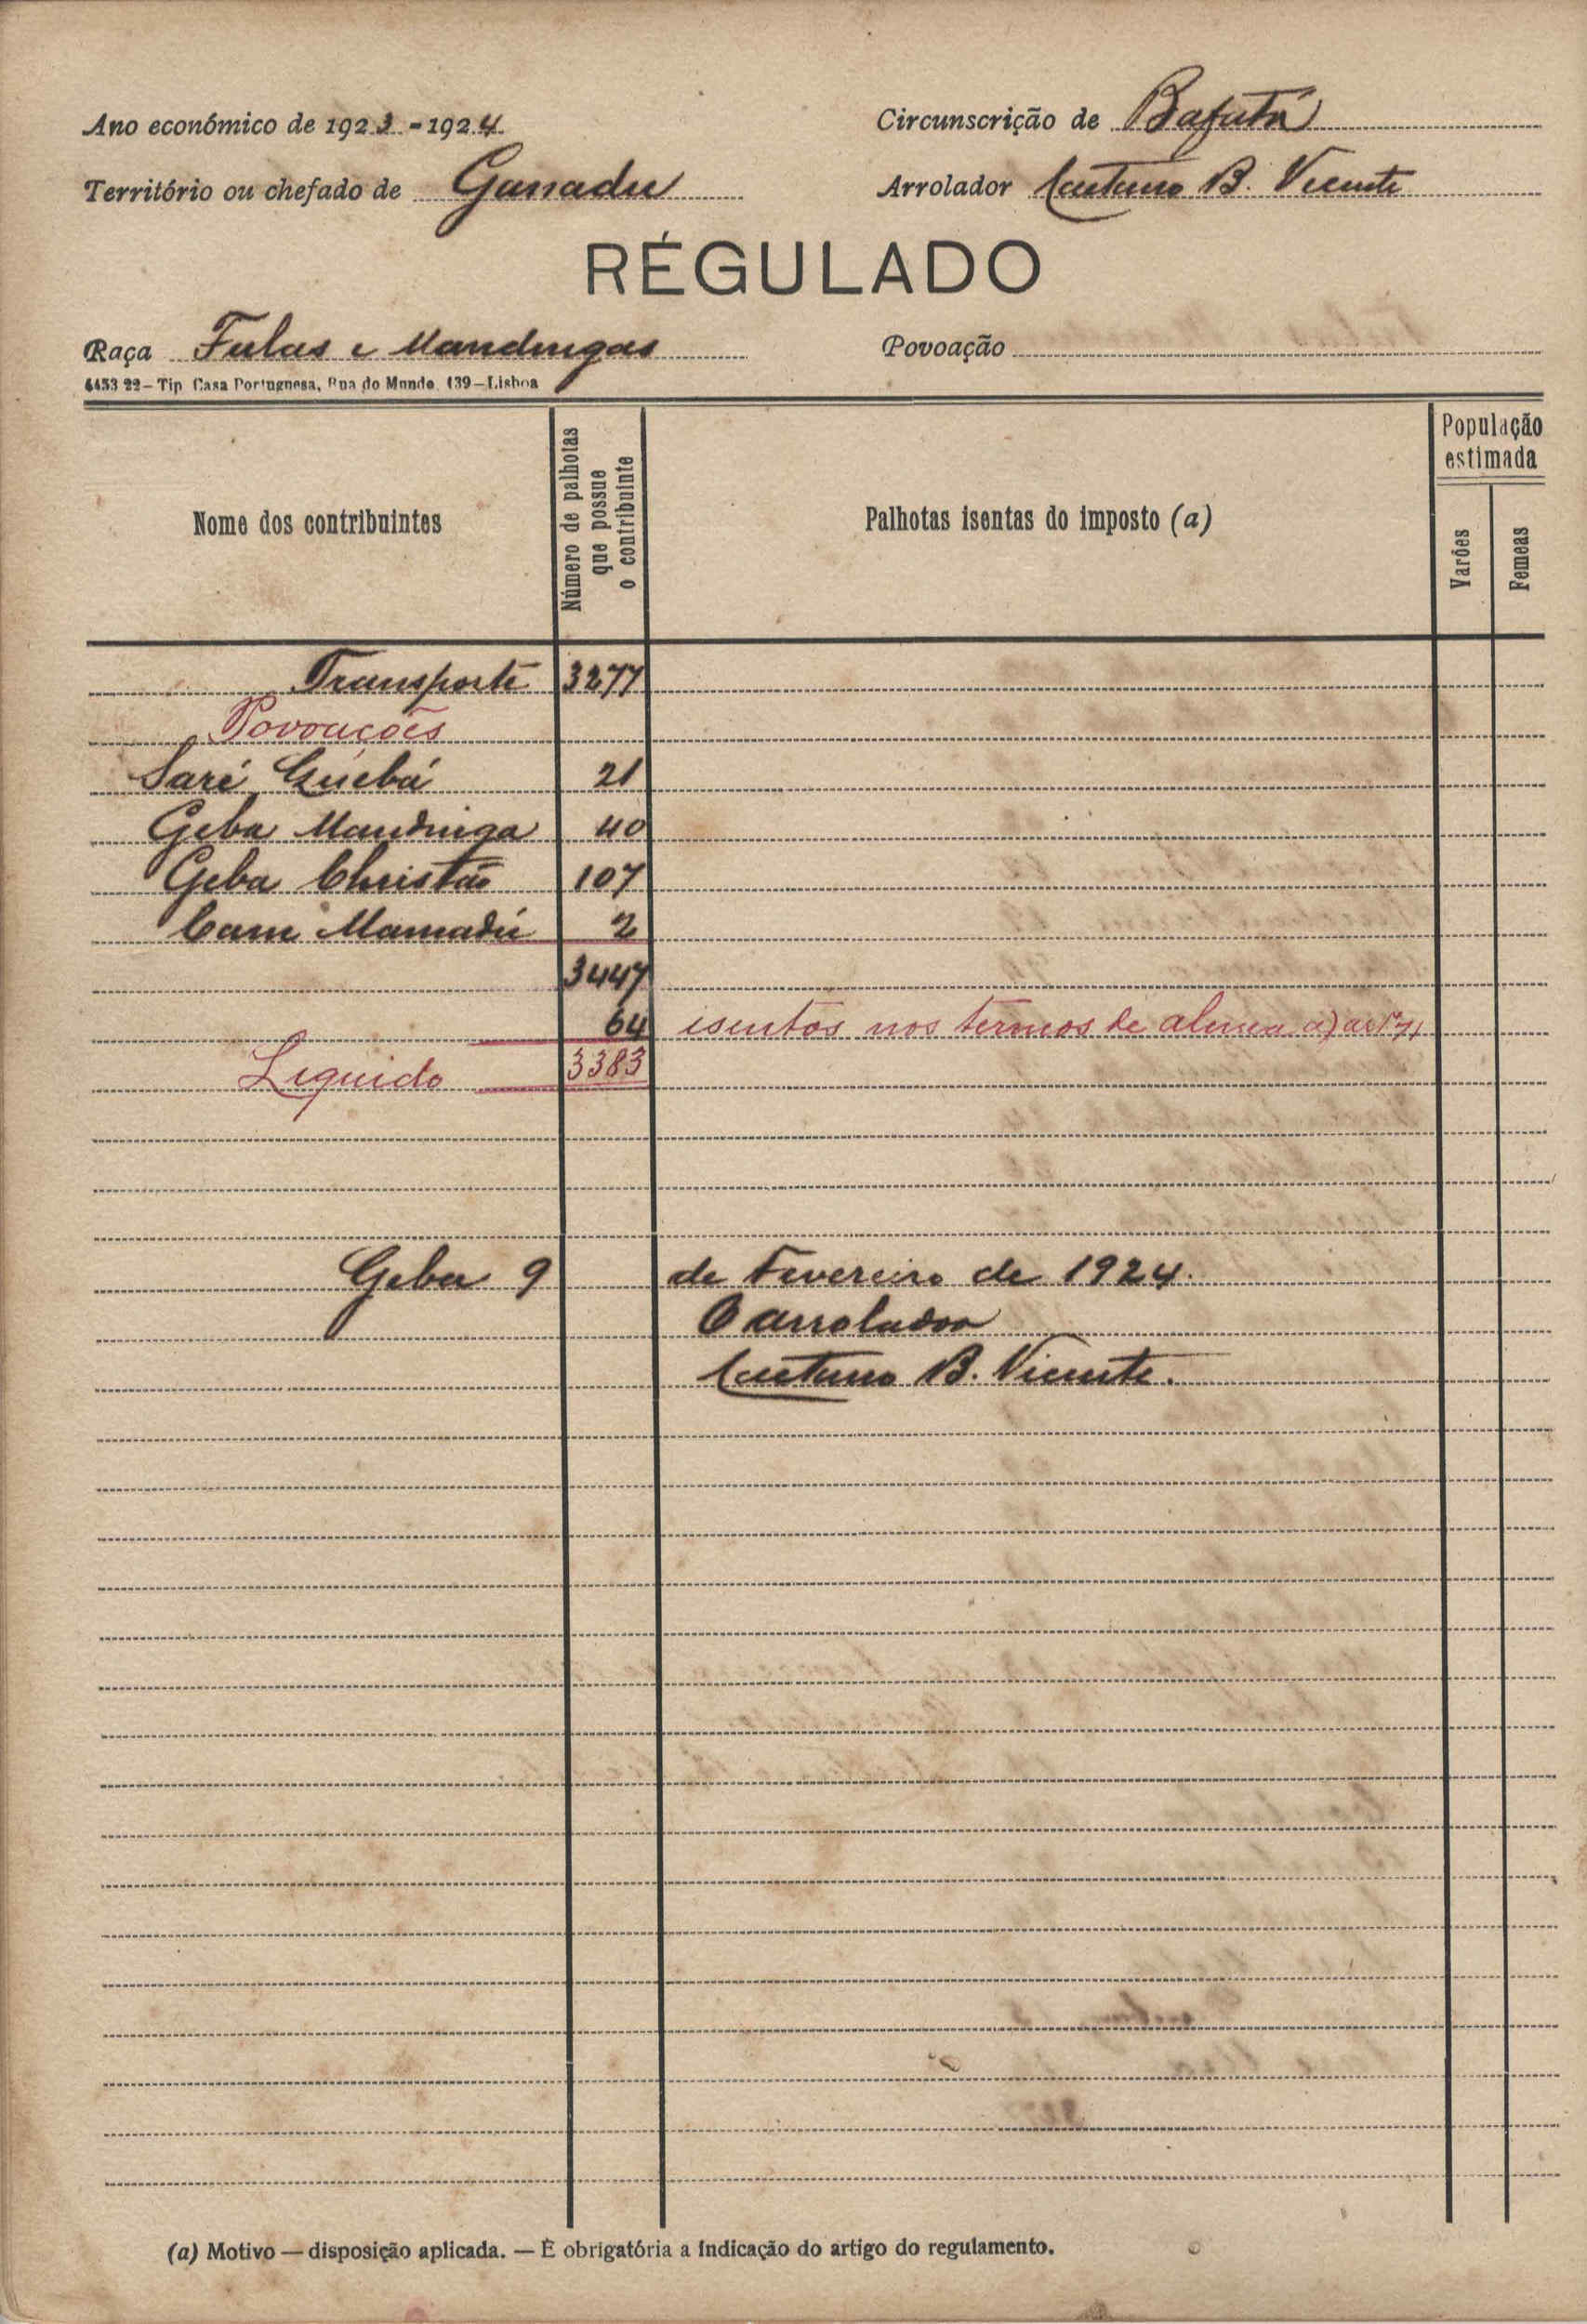 Ano económico de 1923-1924
Circunscrição de Bafatá
Território ou chefado de Ganadu
Arrolador Caetano B. Vicente
RÉGULADO
Raça Fulas e Mandingas
Povoação
6453 22—Tip Casa Portuguesa, Rua do Mundo, 139—Lisboa
Nome dos contribuintes
Número de palhotas que possue o contribuinte
Palhotas isentas do imposto (a)
População estimada
Varões
Femeas
Transporte 3277
Povoações
Saré Guebá 21
Geba Mandinga 40
Geba Christão 107
Cam Mamadú 2
3447
64 isentos nos termos de alinea a) artº
Liquido 3383
Geba 9 de Fevereiro de 1924.
O arrolador
Caetano B. Vicente.
(a) Motivo — disposição aplicada. — É obrigatória a indicação do artigo do regulamento.